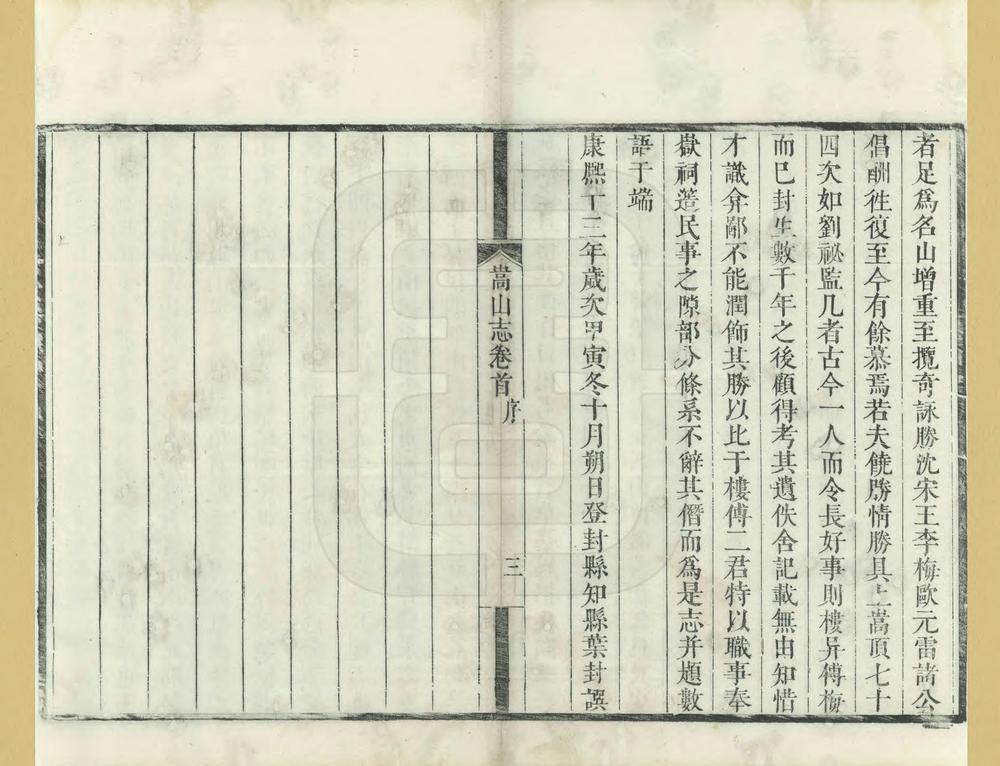 者足爲名山增重至攬奇詠勝沈宋王李梅歐元雷諸公
倡酬徃復至今有餘慕焉若夫饒勝情勝具上嵩頂七十
四次如劉祕監几者古今一人而令長好事則樓异傅梅
而已封生數千年之後顧得考其遺佚舍記載無由知惜
才識弇鄙不能潤飾其勝以比于樓傅二君特以職事奉
嶽祠簉民事之隙部分條系不辭其僭而爲是志并題數
語于端
康熙十三年歲次甲寅冬十月朔日登封縣知縣葉封譔
嵩山志卷首 序
三